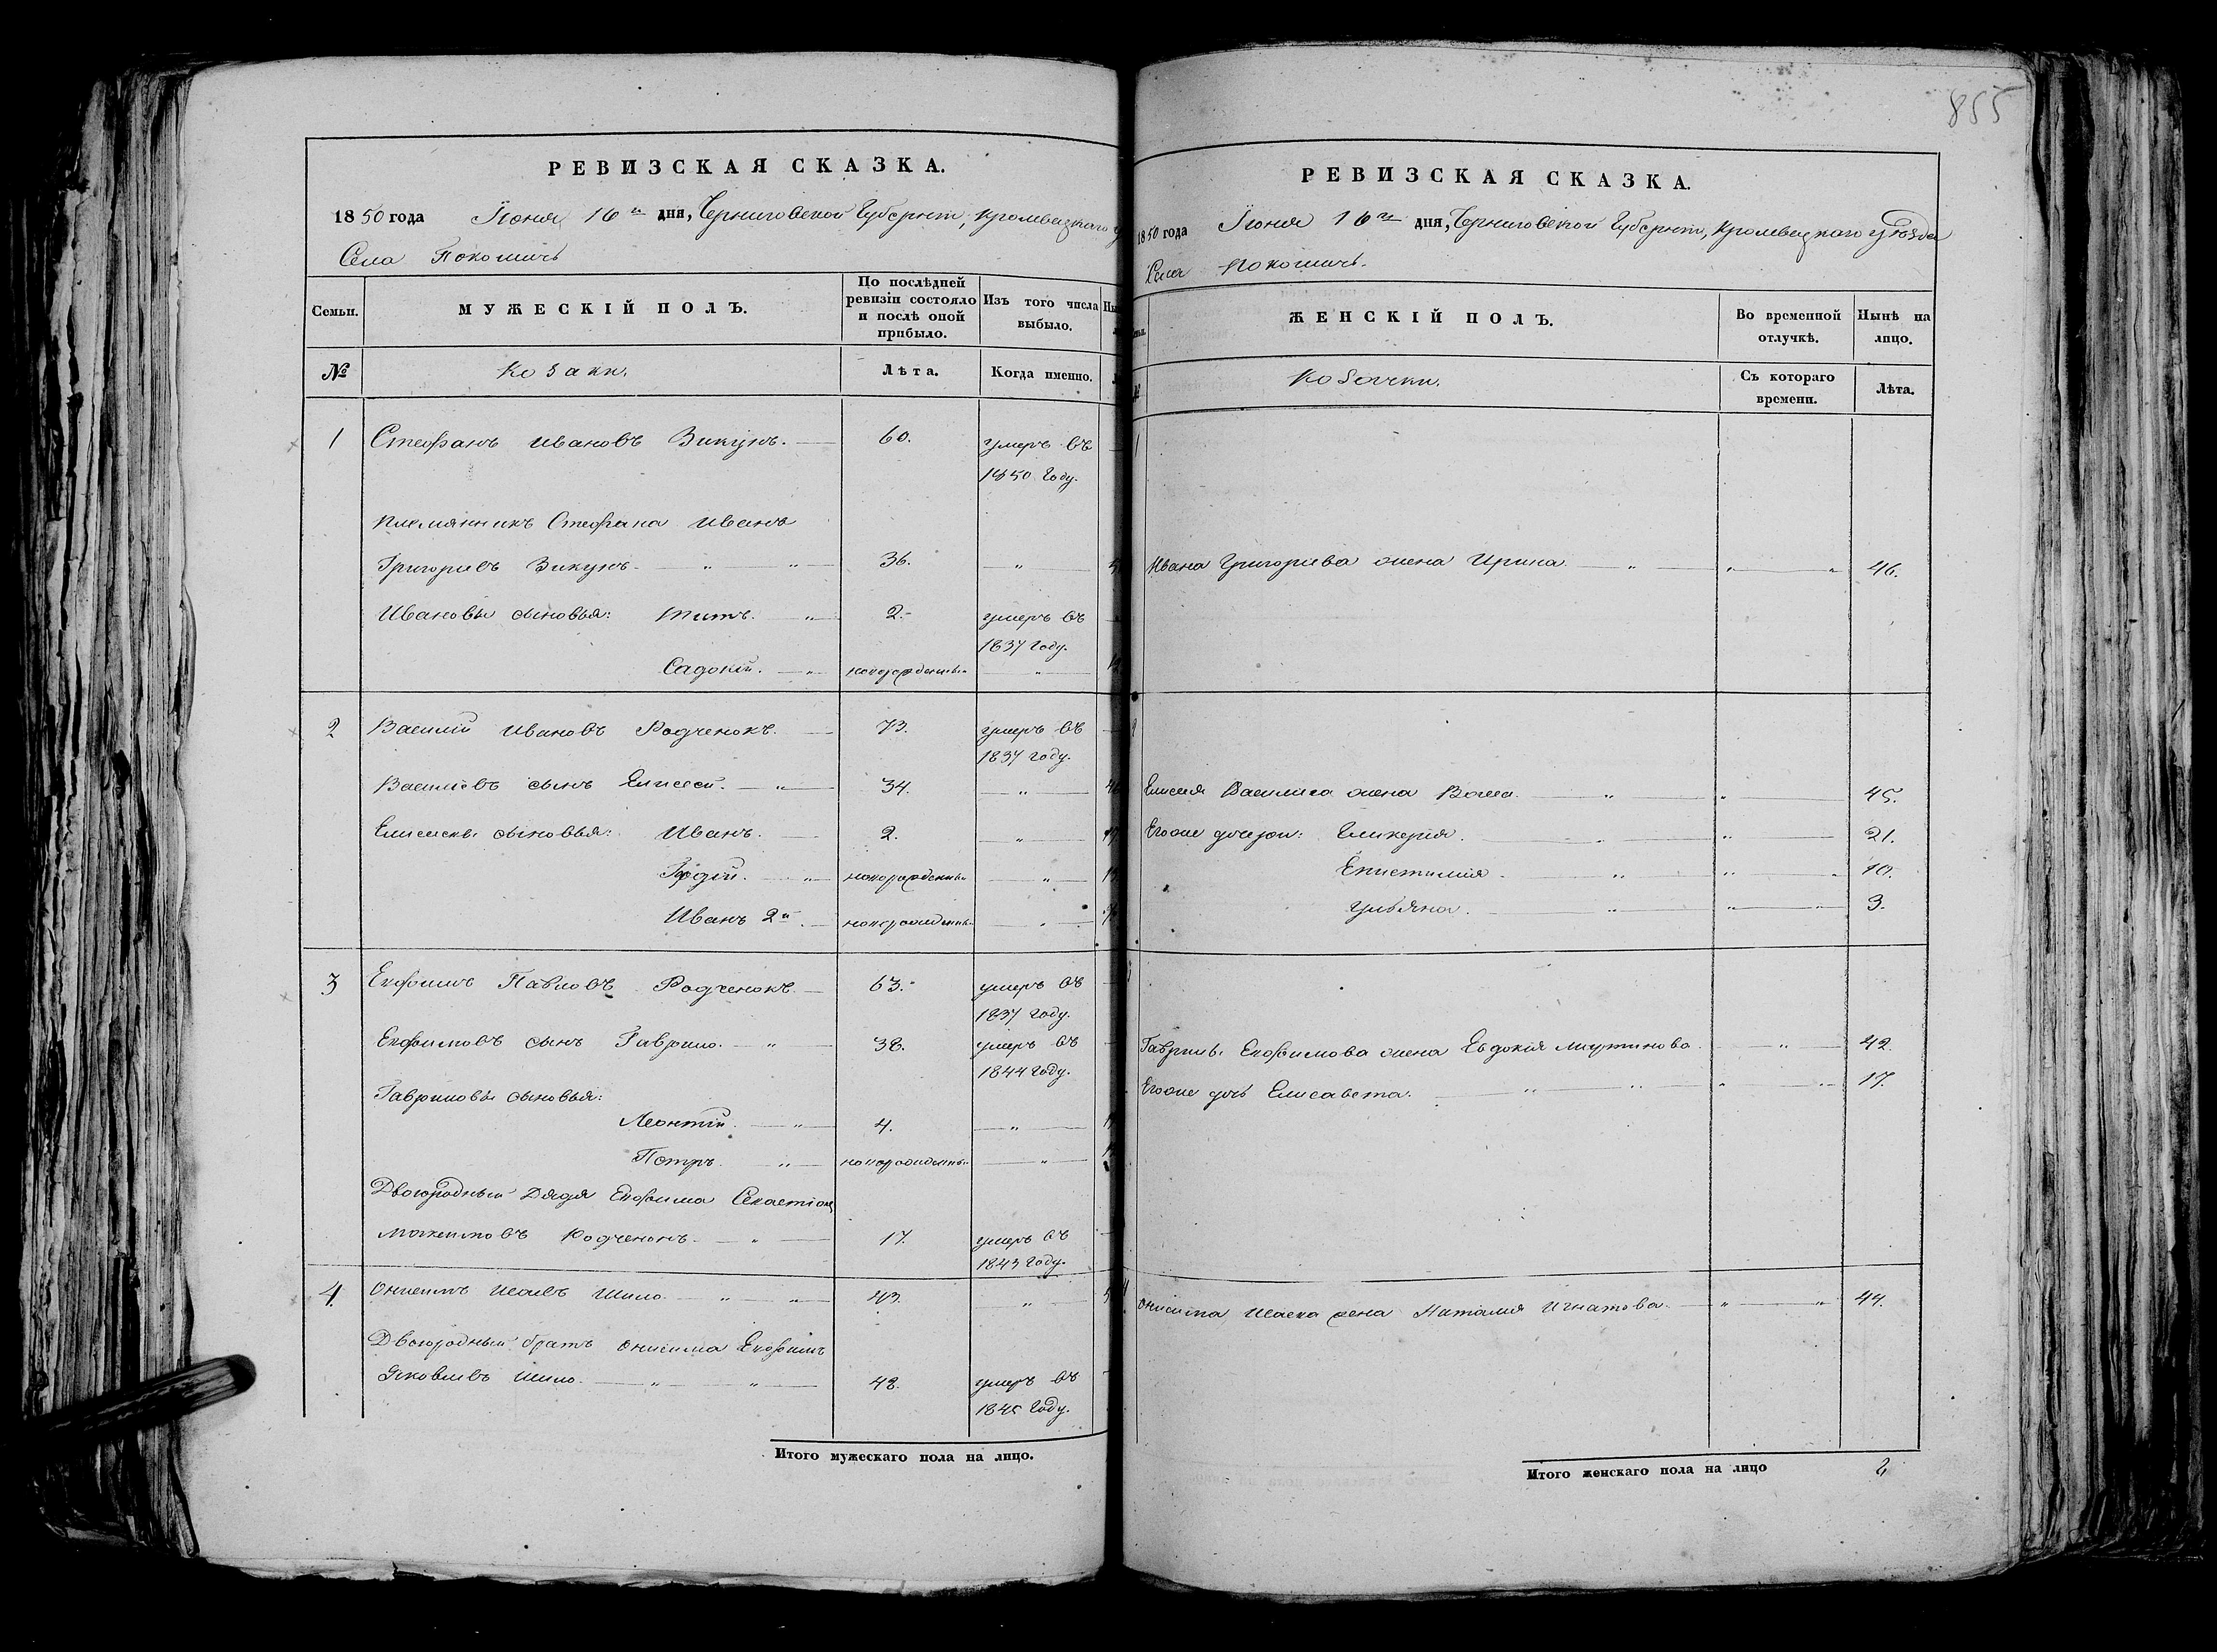 855
РЕВИЗСКАЯ СКАЗКА.
1850 года Іюня 16го дня, Черниговской Губерніи, Кролевецкаго
Села Покошичь
Семьи.
МУЖЕСКІЙ ПОЛЪ.
По послѣдней
ревизіи состояло
и послѣ оной
прибыло.
Изъ того числа
выбыло.
№
Козаки.
Лѣта.
Когда именно.
1 Стефанъ Ивановъ Викунъ. 60. умеръ въ
1850 Году.
Племянникъ Стефана Иванъ
Григорьевъ Викунъ. 36. "
Ивановы сыновья: Титъ. 2. умеръ въ
1837 Году.
Садокій. новорожденный "
2 Василій Ивановъ Родченокъ. 73. умеръ въ
1837 году.
Васильевъ сынъ Елисей. 34. "
Елисеевы сыновья: Иванъ. 2. "
Гордій. новорожденный "
Иванъ 2й новорожденный "
3 Евфимъ Павловъ Родченокъ. 63. умеръ въ
1837 году.
Евфимовъ сынъ Гаврило. 38. умеръ въ
1844 году.
Гавриловы сыновья:
Леонтій. 4. "
Петръ. новорожденный "
Двоюродный Дядя Евфима Севастіанъ
Родченокъ. 17. умеръ въ
1843 году.
4. Онисимъ Исаевъ Шило. 43. "
Двоюродный братъ Онисима Евфимъ
Яковлевъ Шило. 48. умеръ въ
1845 Году.
Итого мужескаго пола на лицо.
РЕВИЗСКАЯ СКАЗКА.
1850 года Іюня 16го дня, Черниговской Губерніи, Кролевецкаго уѣзда
Села Покошичь.
ЖЕНСКІЙ ПОЛЪ.
Во временной
отлучкѣ.
Нынѣ на
лицо.
№
Козачки.
Съ котораго
времени.
Лѣта.
1
Ивана Григорьева жена Ирина. " " 46.
2
Елисея Васильева жена " " 45.
Егоже дочери: Гликерія. " 21.
Епистимія " " 10.
Ульяна. " " 3.
3
Гаврилы Евфимова жена Евдокія 42.
Егоже дочь Елисавета. " " 17.
4
Онисима Исаева жена Наталия Игнатова. " " 44.
Итого женскаго пола на лицо